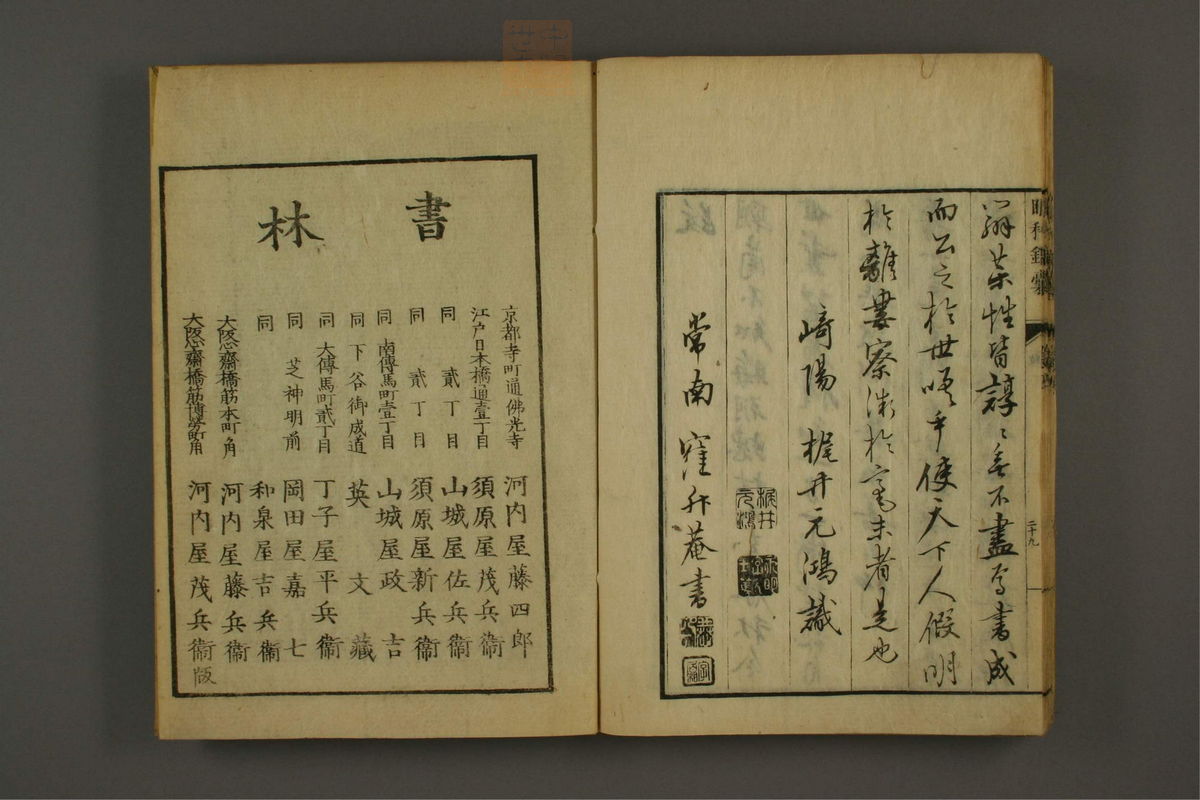 辯藥性皆諄〻無不盡焉書成
而公之於世嗟乎使天下人假明
於離婁察微於毫末者是也
﨑陽 梶井元鴻識
梶井元鴻
常南 窪升菴書
二十九
書林
京都寺町通佛光寺 河内屋藤四郎
江戸日本橋通壹丁目 須原屋茂兵衞
同 貳丁目 山城屋佐兵衞
同 貳丁目 須原屋新兵衞
同 南傳馬町壹丁目 山城屋政吉
同 下谷御成道 英文藏
同 大傳馬町貳丁目 丁子屋平兵衞
同 芝神明前 岡田屋嘉七
同 和泉屋吉兵衞
大阪心齋橋筋本町角 河内屋藤兵衞
大阪心齋橋筋博勞町角 河内屋茂兵衞版